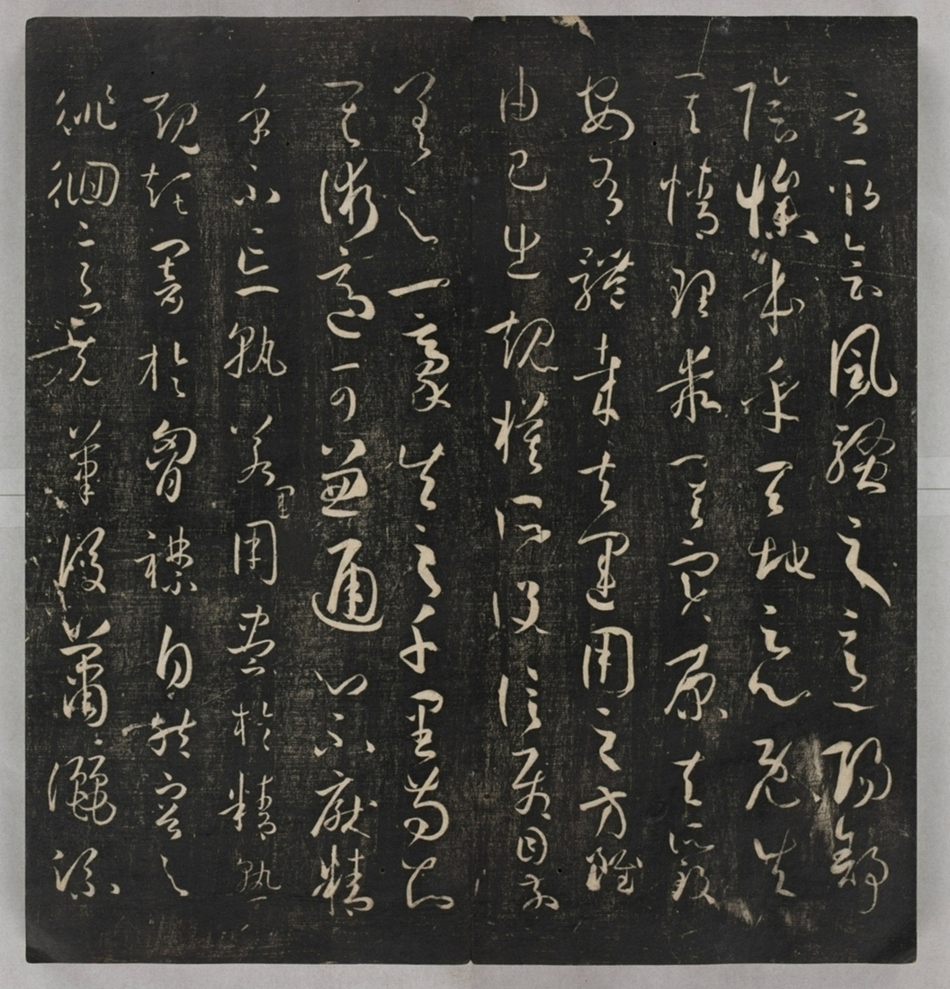 言取會風騷之意陽舒
陰慘本乎天地之心既失
其情理乖其實原夫所致
安有體哉夫運用之方雖
由己出規模所設信屬目前
差之一豪失之千里苟知
其術適可兼通心不厭精
手不忘熟若運用盡於精熟
規矩闇於胸襟自然容與
徘徊意先筆後瀟灑流